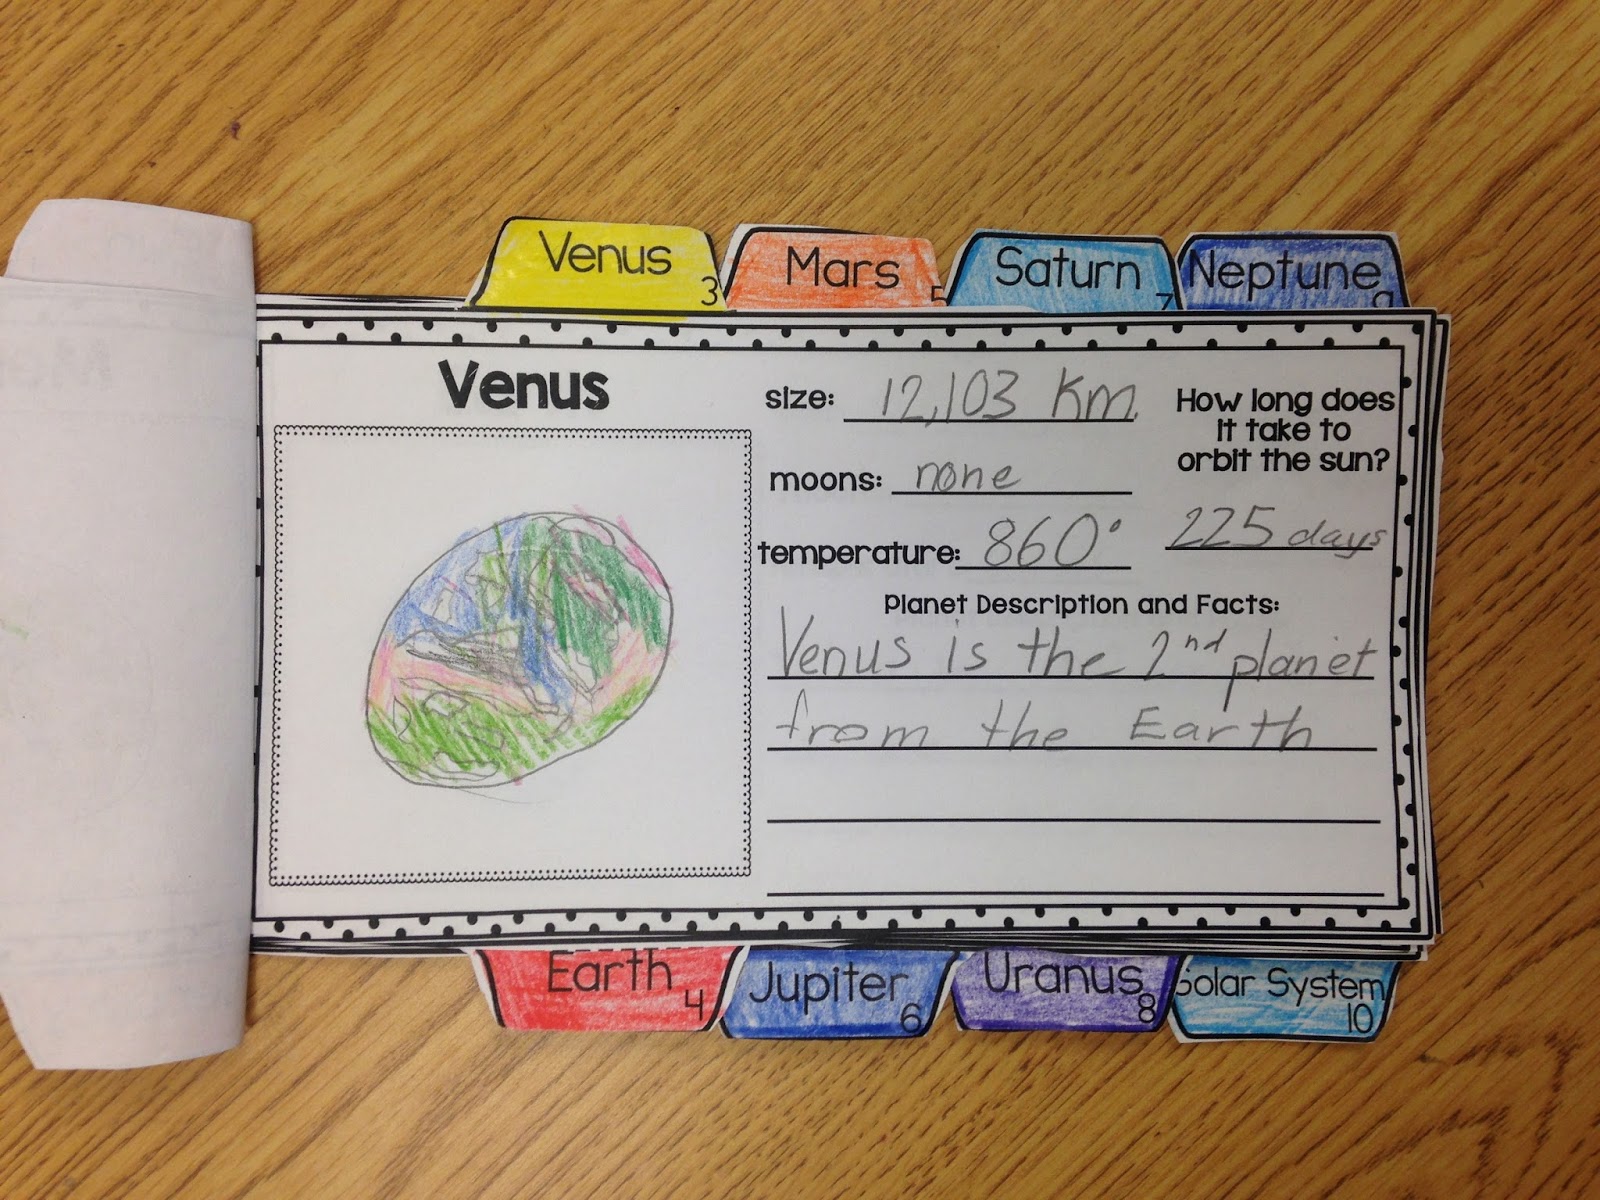 Venus
3
Mars
5
Saturn
7
Neptune
9
Venus
size: 12,103 Km.
moons: none
temperature: 860°
How long does
it take to
orbit the sun?
225 days
Planet Description and Facts:
Venus is the 2nd planet
from the Earth
Earth
4
Jupiter
6
Uranus
8
Solar System
10